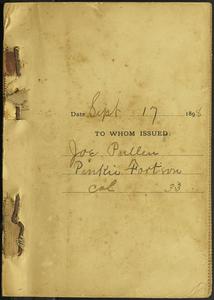 Date Sept 17 1898
TO WHOM ISSUED:
Joe Pullen
Pinkie Fortson
Col 33